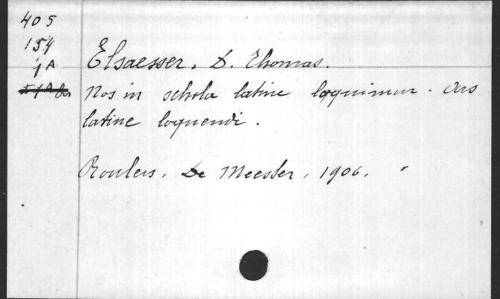 405
154
1A
Elsaesser, D. Thomas.
Nos in schola latine loquimur. Ars
latine loquendi.
Roulers, De Meester, 1906.